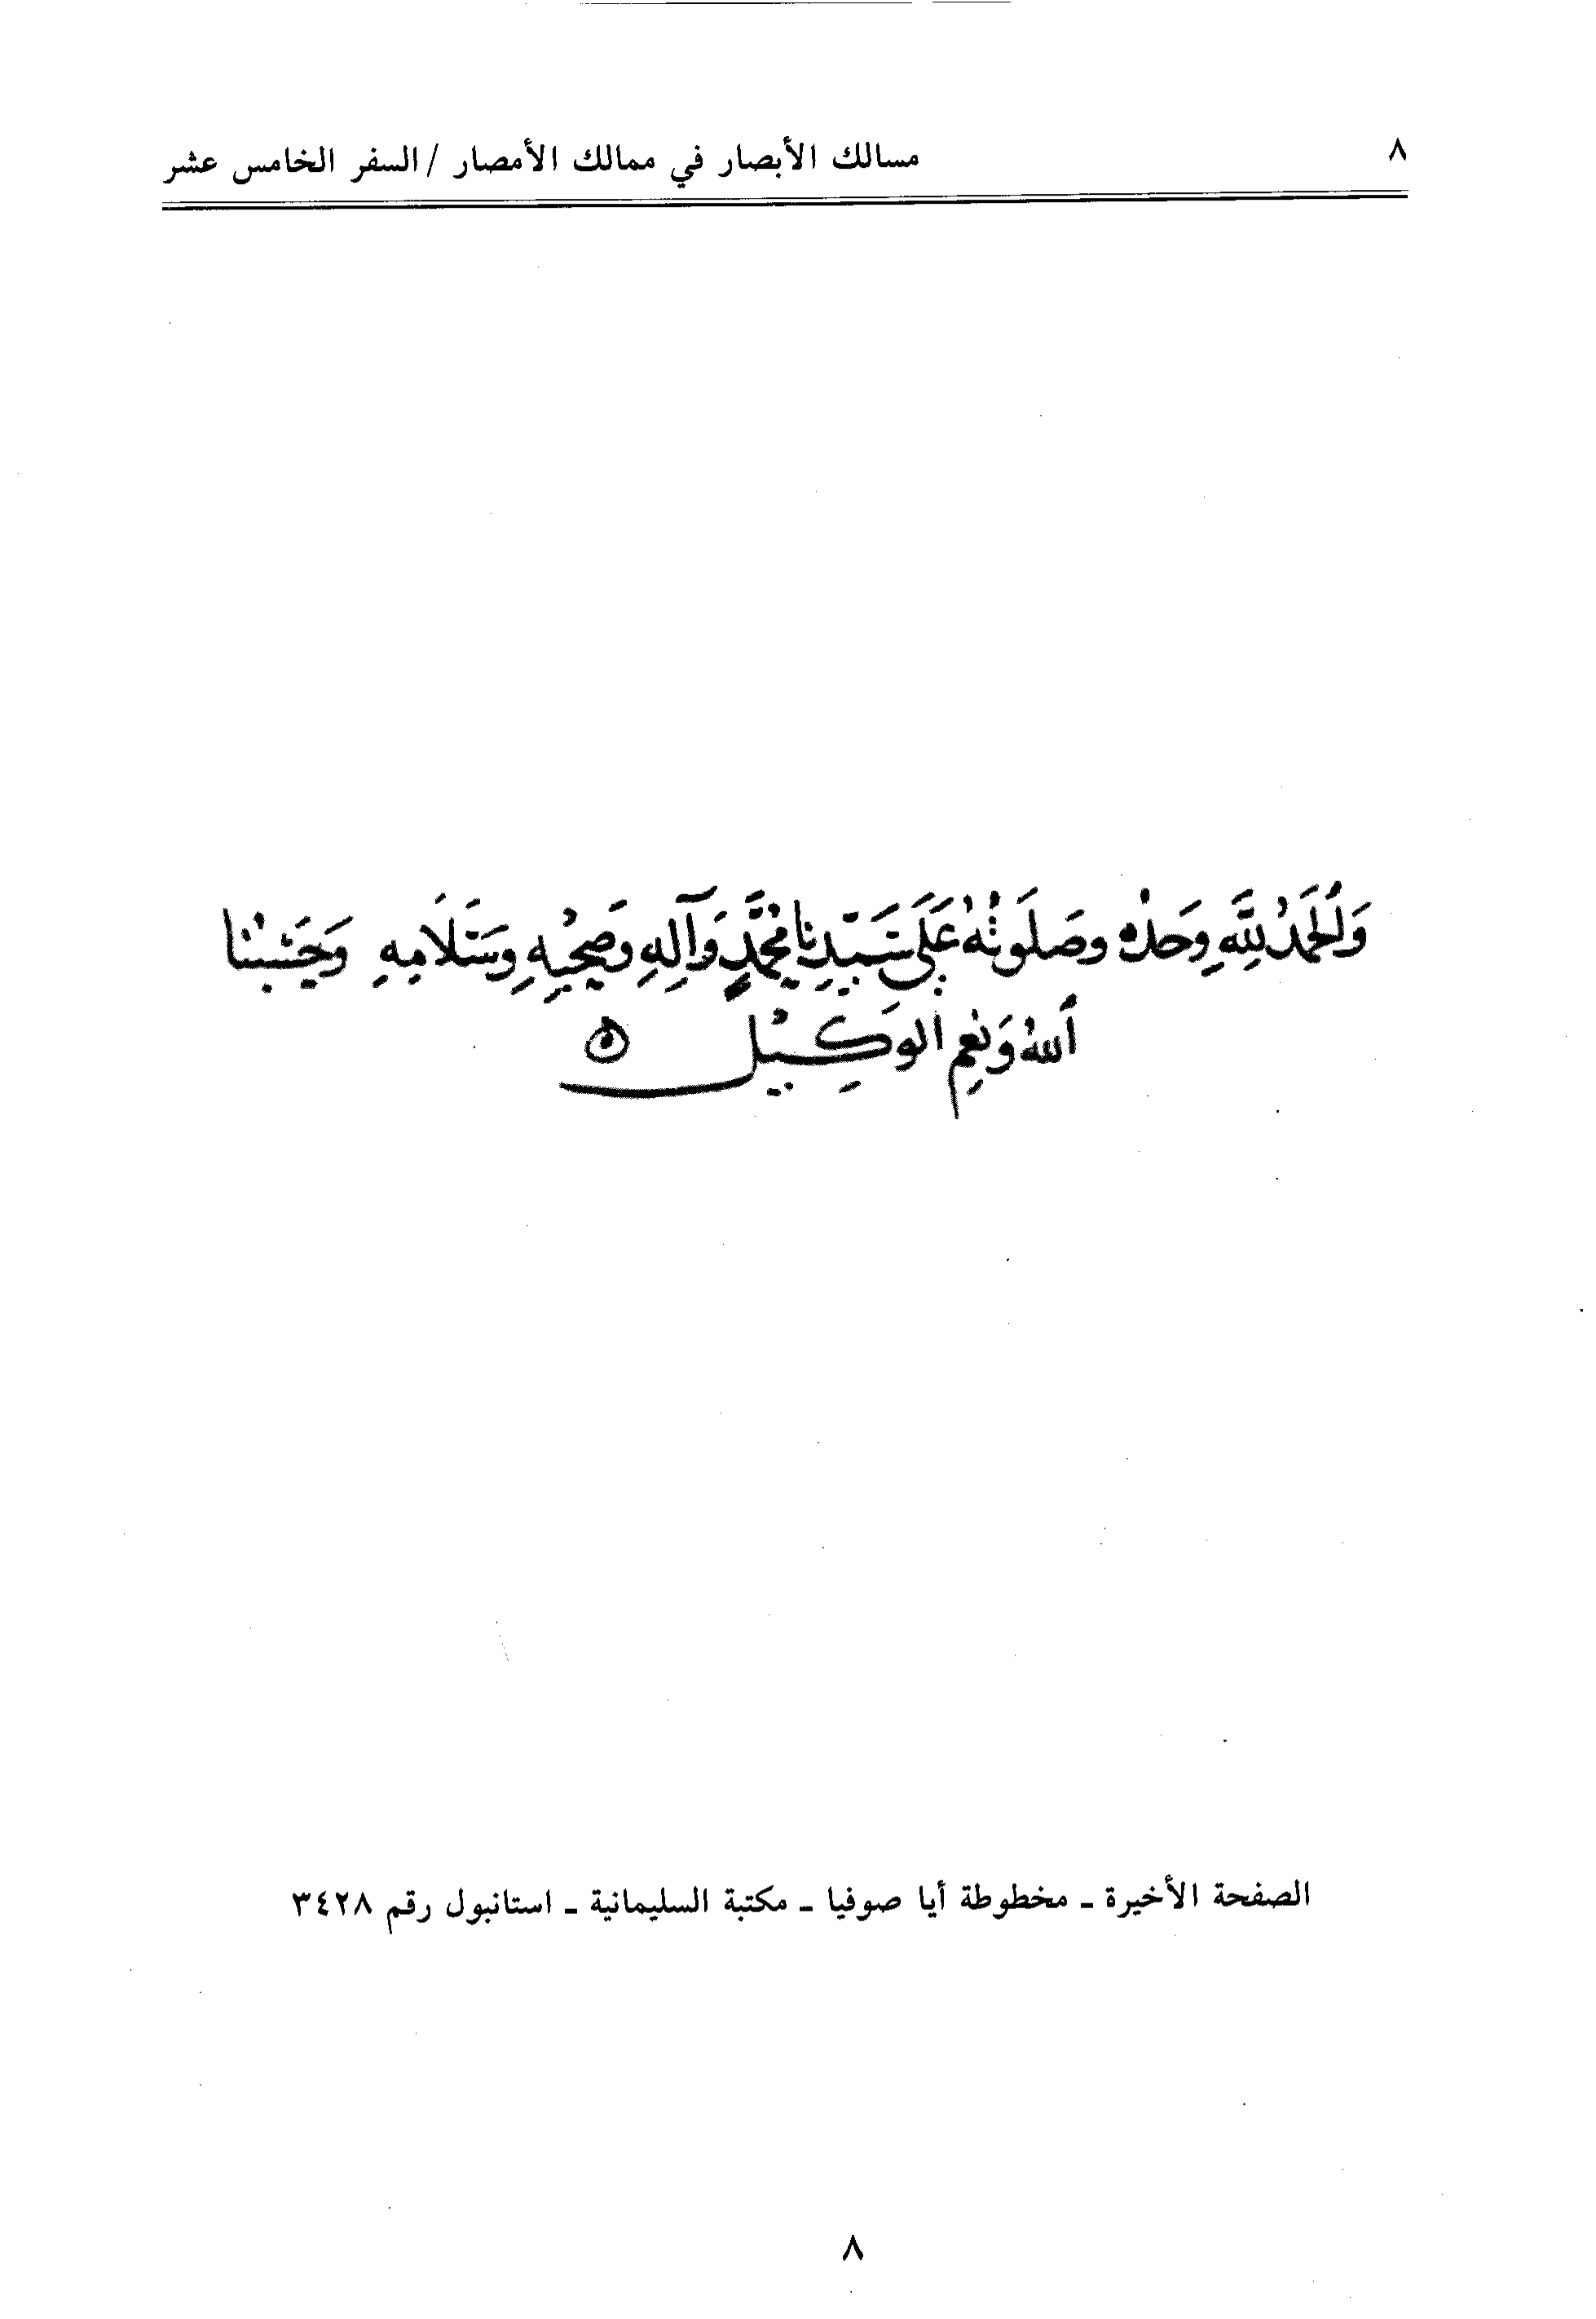 ٨
مسالك الأبصار في ممالك الأمصار / السفر الخامس عشر
وَاَلحَمدُ لِلَّهِ وَحدَهُ وصَلَوتُهُ عَلَى سَيّدِنا مُحمَّدٍ وَآلِهِ وصَحْبِهِ وسَلَامِهِ وَحَسْبُنا
اَللهُ وَنِعْم الوَكِيْل ه
الصفحة الأخيرة ـ مخطوطة أيا صوفيا ـ مكتبة السليمانية ـ استانبول رقم ٣٤٢٨
٨